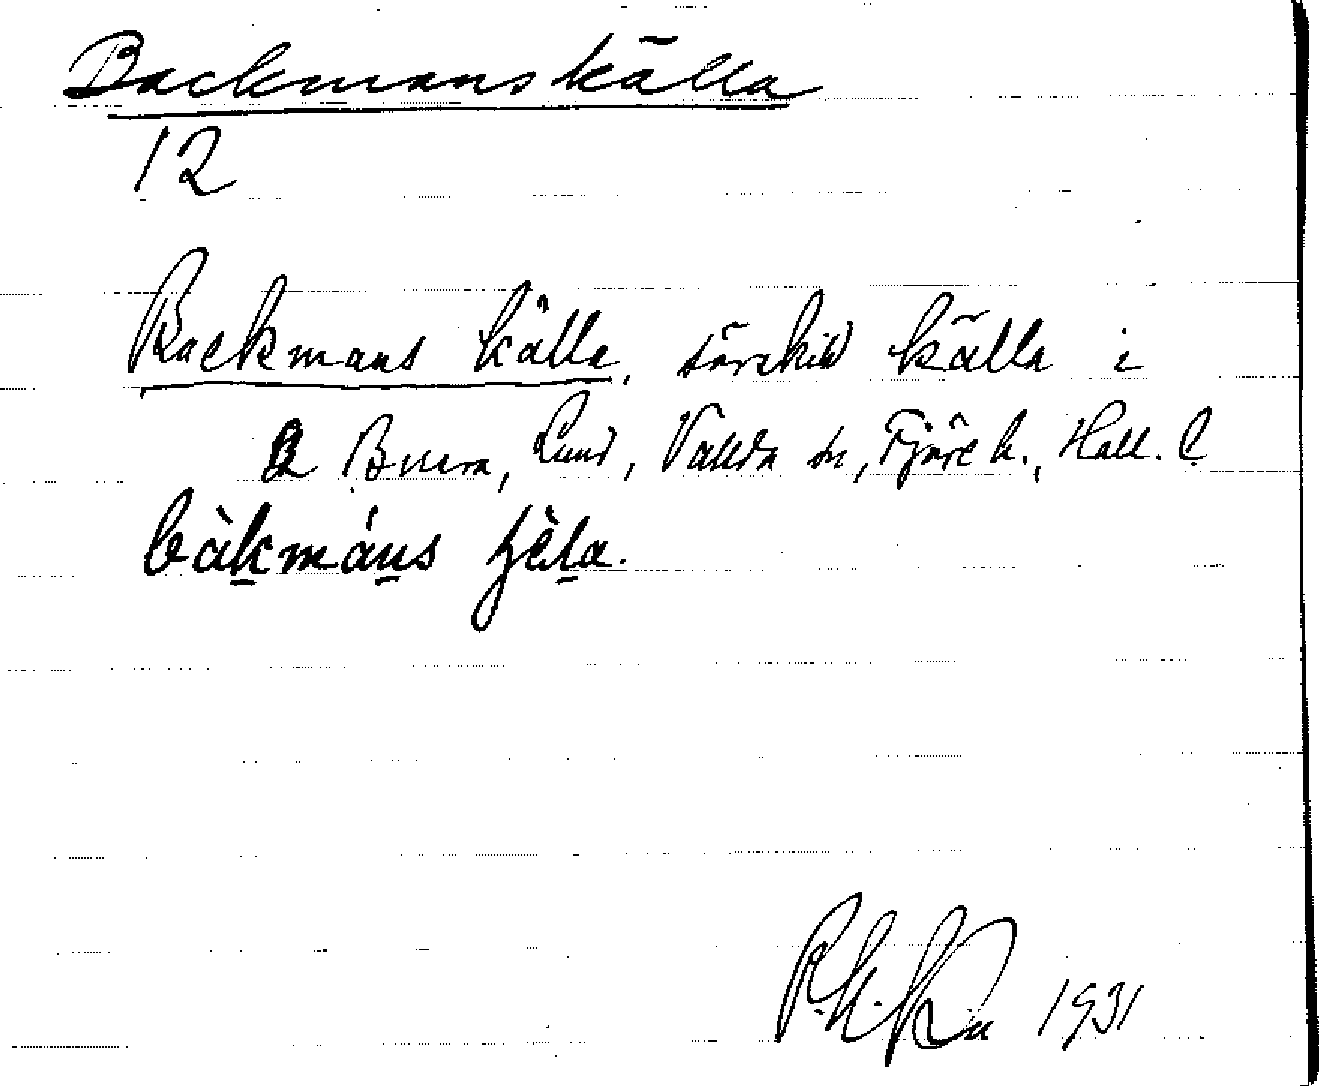 Backmanskälla
12
Backmans källa, särskild källa i
Buera, Lund, Vallda sn, Fjäre h., Hall. l.
bàkmáns
1931